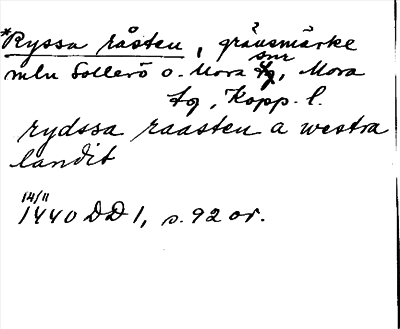 *Ryssa råsten, gränsmärke
mln Sollerö o. Mora snr, Mora
tg, Kopp. l.
rydssa raasten a westra
landit
14/11
1440 DD 1, s. 92 or.